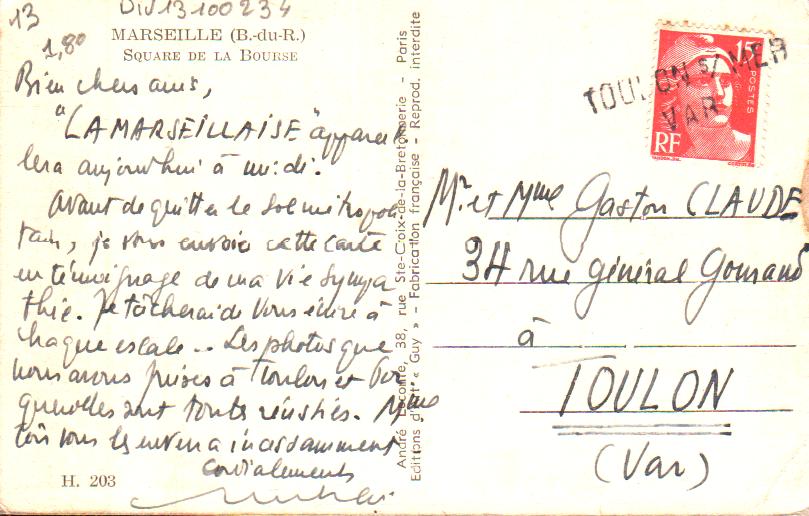 13
DIV13100234
1,80
MARSEILLE (B.-du-R.)
SQUARE DE LA BOURSE
Bien chers amis,
"LA MARSEILLAISE" apparei
lera aujourd'hui à midi.
Avant de quitter le sol métropoli
tain, je vous envoie cette carte
en témoignage de ma vie sympa
thie. Je tâcherai de vous écrire à
chaque escale.. Les photos que
nous avons prises à Toulon et Por
querolles sont toutes réussies. Mme
vous les enverra incessamment
Cordialements
H. 203
André Leconte, 38, rue Ste-Croix-de-la-Bretonnerie - Paris
Editions d'art « Guy » - Fabrication française - Reprod. interdite
15F
POSTES
RF
TOULON s/ MER
VAR
Mr. et Mme Gaston CLAUDE
34 rue général Gouraud
à
TOULON
(Var)